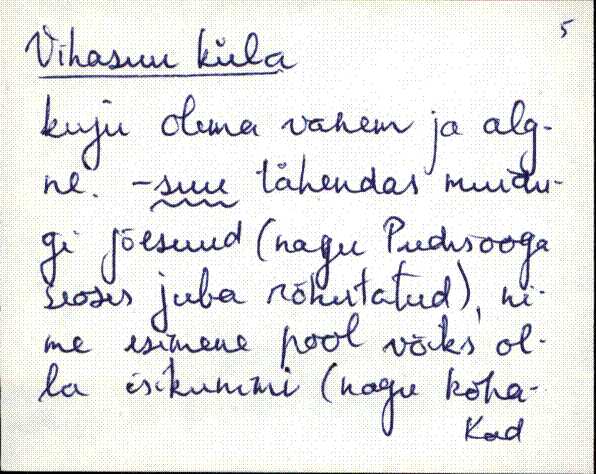 5
Vihasuu küla
kuju olema vanem ja alg-
ne. -suu tähendas muidu-
gi jõesuud (nagu Pudisooga
seoses juba rõhutatud), ni-
me esimene pool võiks ol-
la isikunimi (nagu koha-
Kad